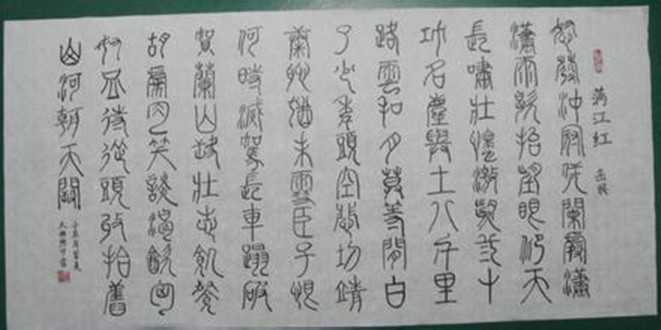 滿江紅 岳飛
怒發沖冠凭闌處瀟
瀟雨歇抬望眼仰天
長嘯壯懷激烈三十
功名塵與土八千里
路雲和月莫等閒白
了少年頭空悲切靖
康恥猶未雪臣子恨
何時滅駕長車踏破
賀蘭山缺壯志飢餐
胡虜肉笑談渴飲匈
奴血待從頭收拾舊
山河朝天闕